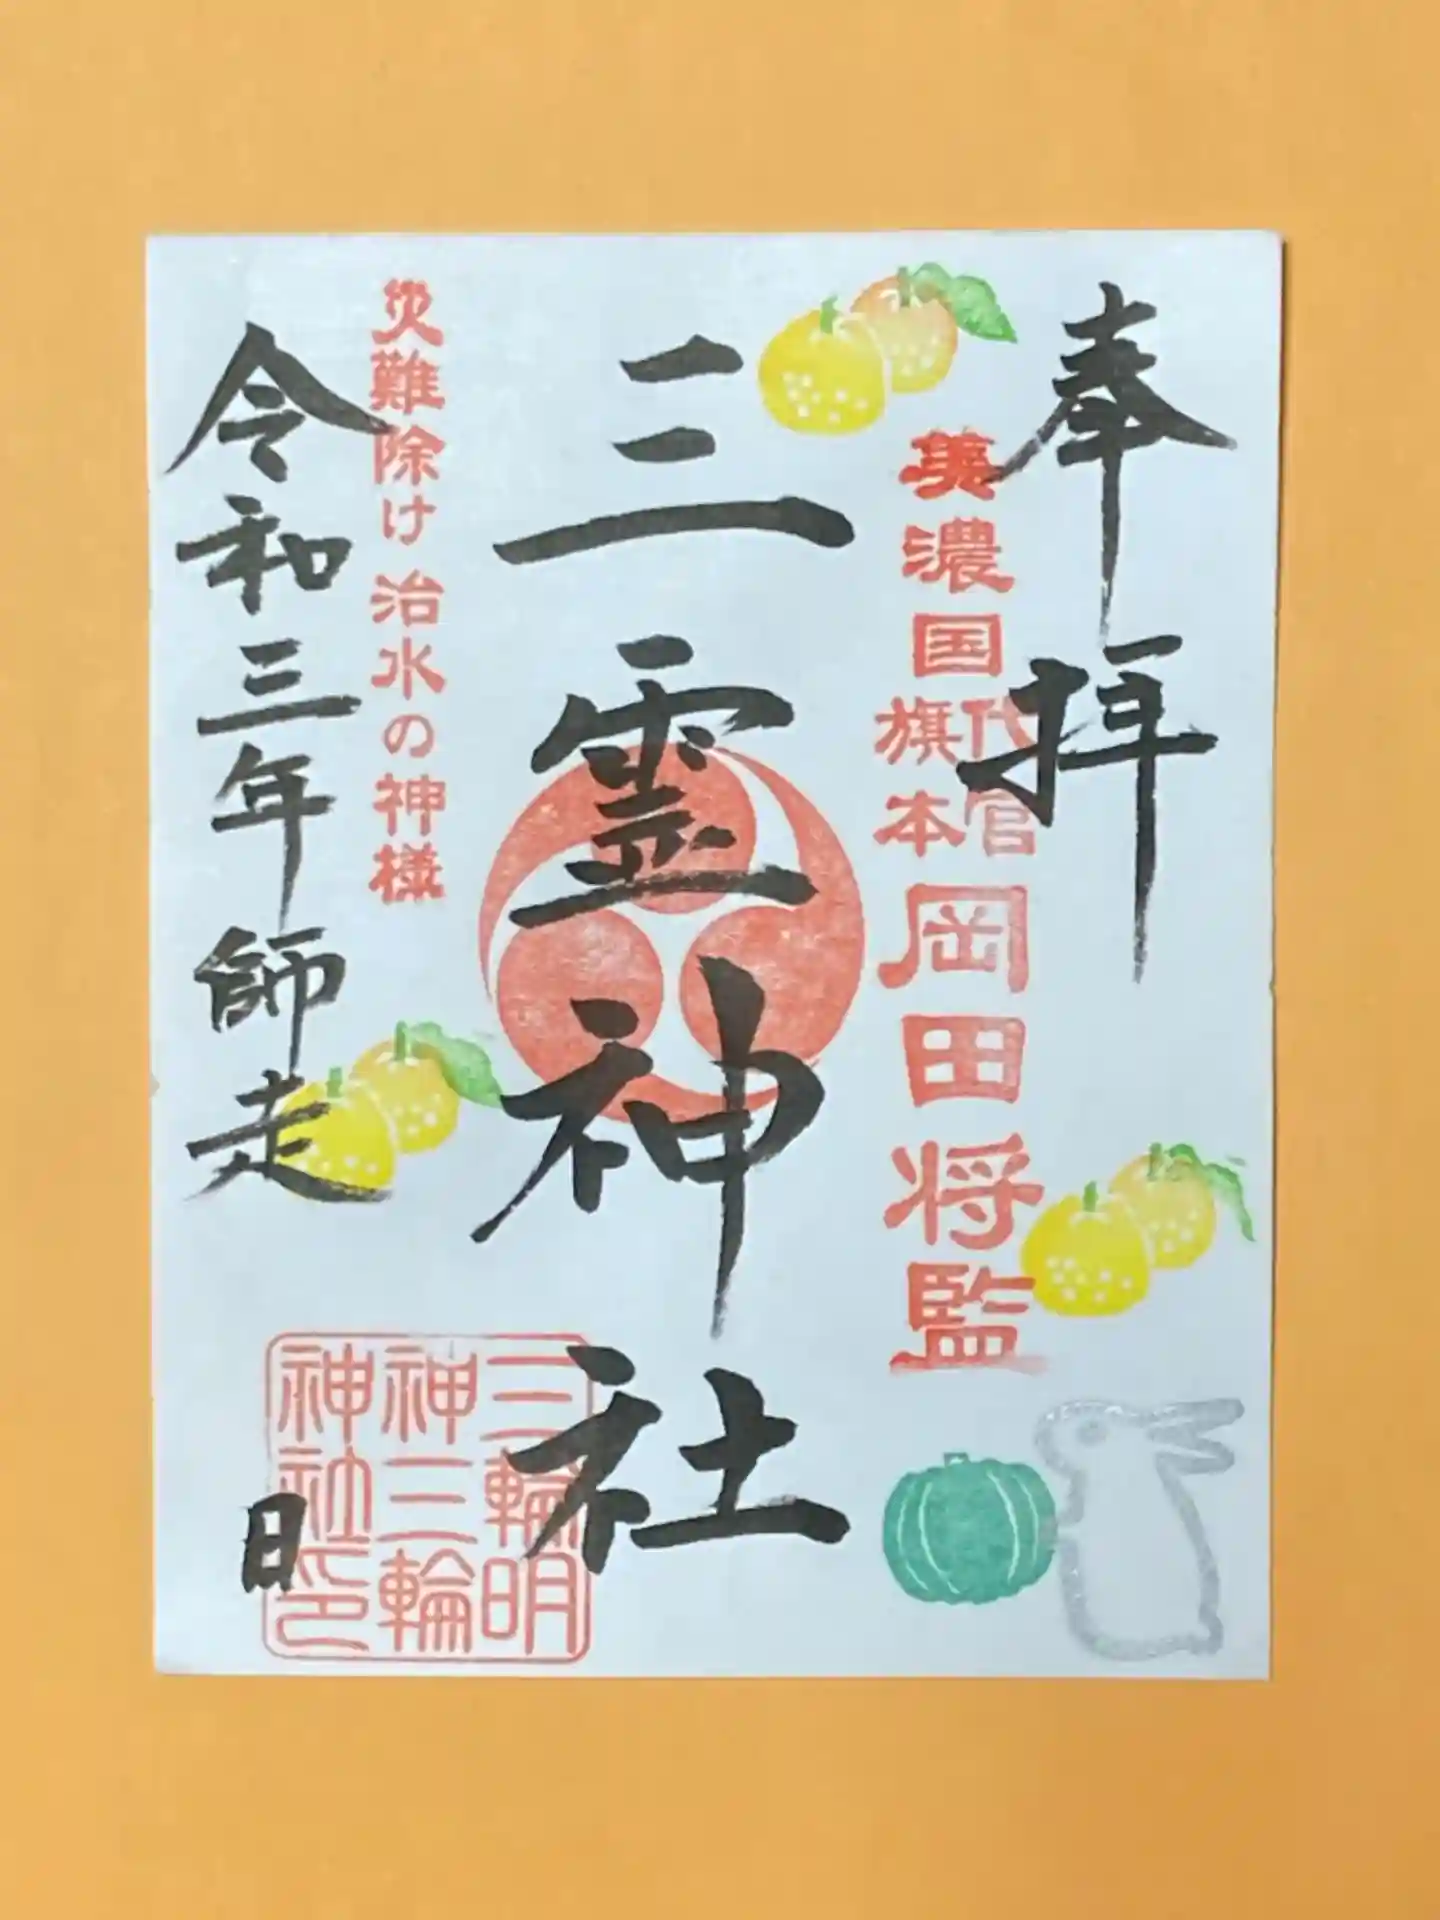 奉拝
美濃国
代官
旗本
岡田将監
三霊神社
災難除け 治水の神様
令和三年師走
日
三輪明
神三輪
神社印